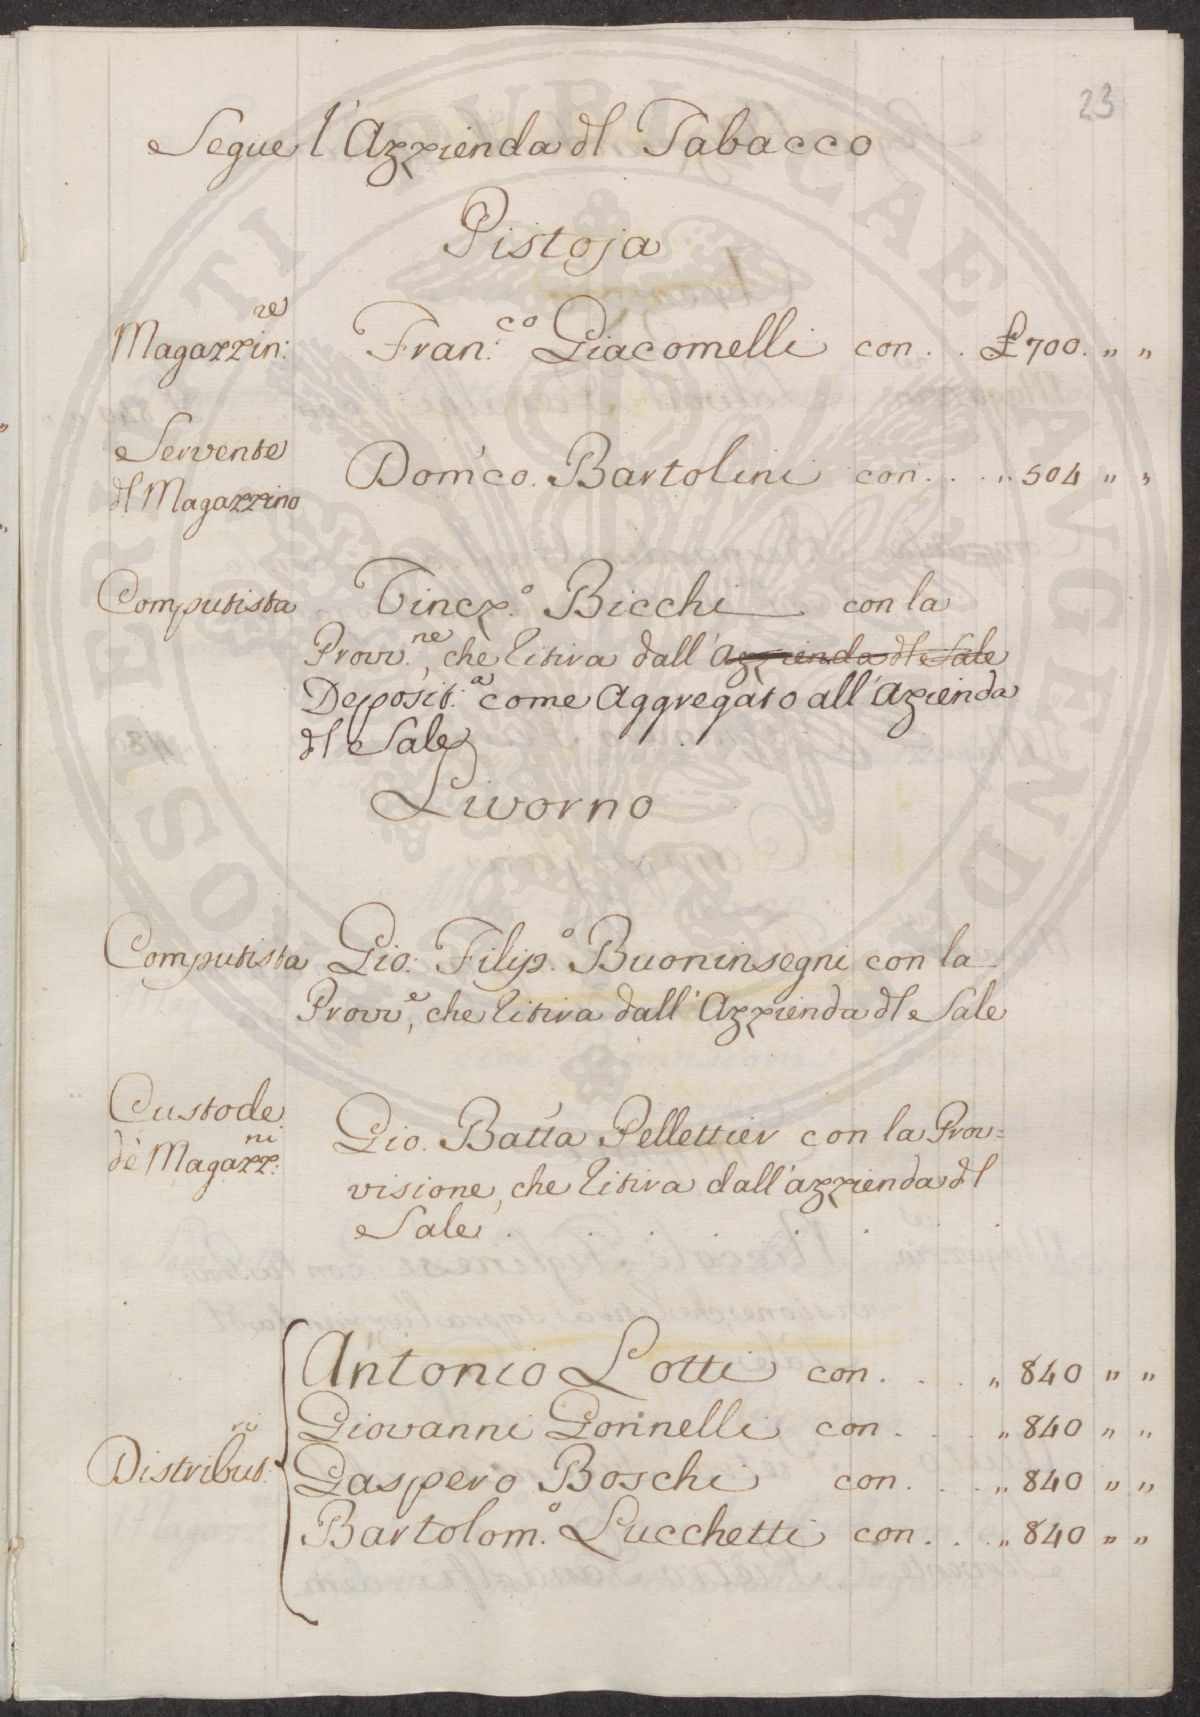 23
Segue l'Azzienda dl Tabacco
Pistoja
Magazzin:re Fran:co Giacomelli con . . £ 700. " "
Servente
dl Magazzino Dom'co. Bartolini con . . . " 504 " "
Computista Vincz.o Bicchi con la
Provv.ne, che litira dall' Azzienda dl Sale
Deposit:a come Aggregato all' Azienda
dl Sale
Livorno
Computista Gio: Filip.o Buoninsegni con la
Provv.e, che litira dall' Azzienda dl Sale
Custode
de' Magazz:ni Gio. Batta Pellettier con la Prov=
visione, che litira dall' azzienda dl
Sale . . . . . .
Antonio Lotti con . . . " 840 " "
Giovanni Gorinelli con . . . " 840 " "
Distribut:ri Gaspero Boschi con . . . " 840 " "
Bartolom.o Lucchetti con . . . " 840 " "